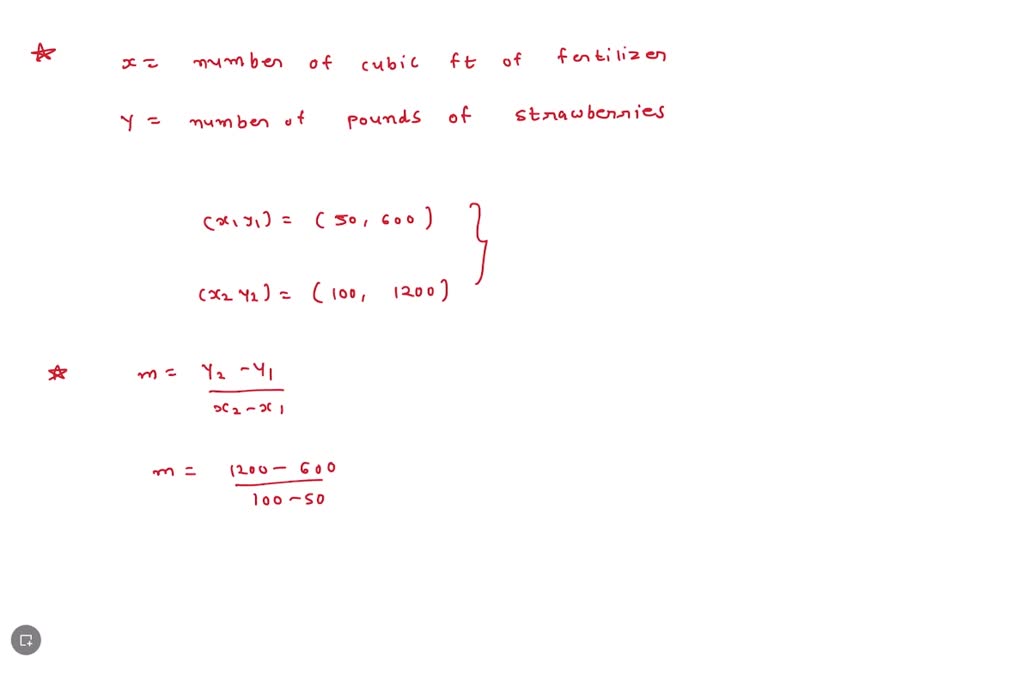 x = number of cubic ft of fertilizer
Y = number of pounds of strawberries
(x1 y1) = (50, 600)
(x2 Y2) = (100, 1200)
m = Y2 - Y1
x2 - x1
m = 1200 - 600
100 - 50